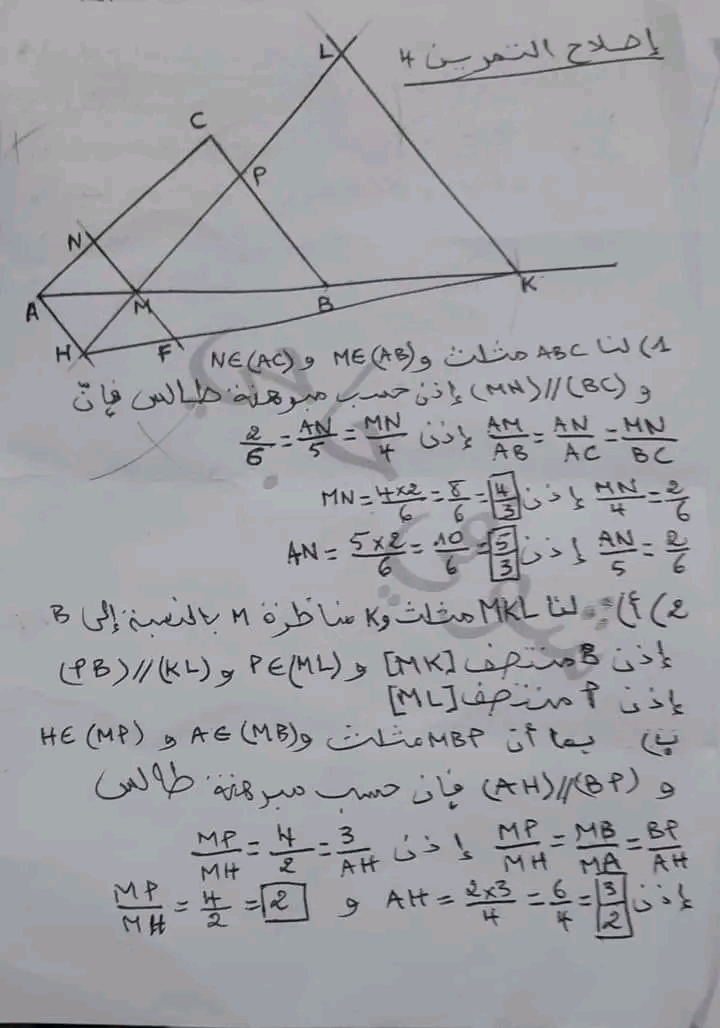 إصلاح التمرين 4
L
C
P
N
A
M
B
K
H
F
1) لنا ABC مثلث و M∈(AB) و N∈(AC)
و (MN)//(BC) إذن حسب مبرهنة طالس فإنّ
AM/AB = AN/AC = MN/BC إذن 2/6 = AN/5 = MN/4
MN/4 = 2/6 إذن MN = 4×2/6 = 8/6 = 4/3
AN/5 = 2/6 إذن AN = 5×2/6 = 10/6 = 5/3
2) أ) لنا MKL مثلث و K مناظرة M بالنسبة إلى B
إذن B منتصف [MK] و P∈(ML) و (PB)//(KL)
إذن P منتصف [ML]
ب) بما أن MBP مثلث و A∈(MB) و H∈(MP)
و (AH)//(BP) فإن حسب مبرهنة طالس
MP/MH = MB/MA = BP/AH إذن MP/MH = 4/2 = 3/AH
إذن AH = 2×3/4 = 6/4 = 3/2 و MP/MH = 4/2 = 2